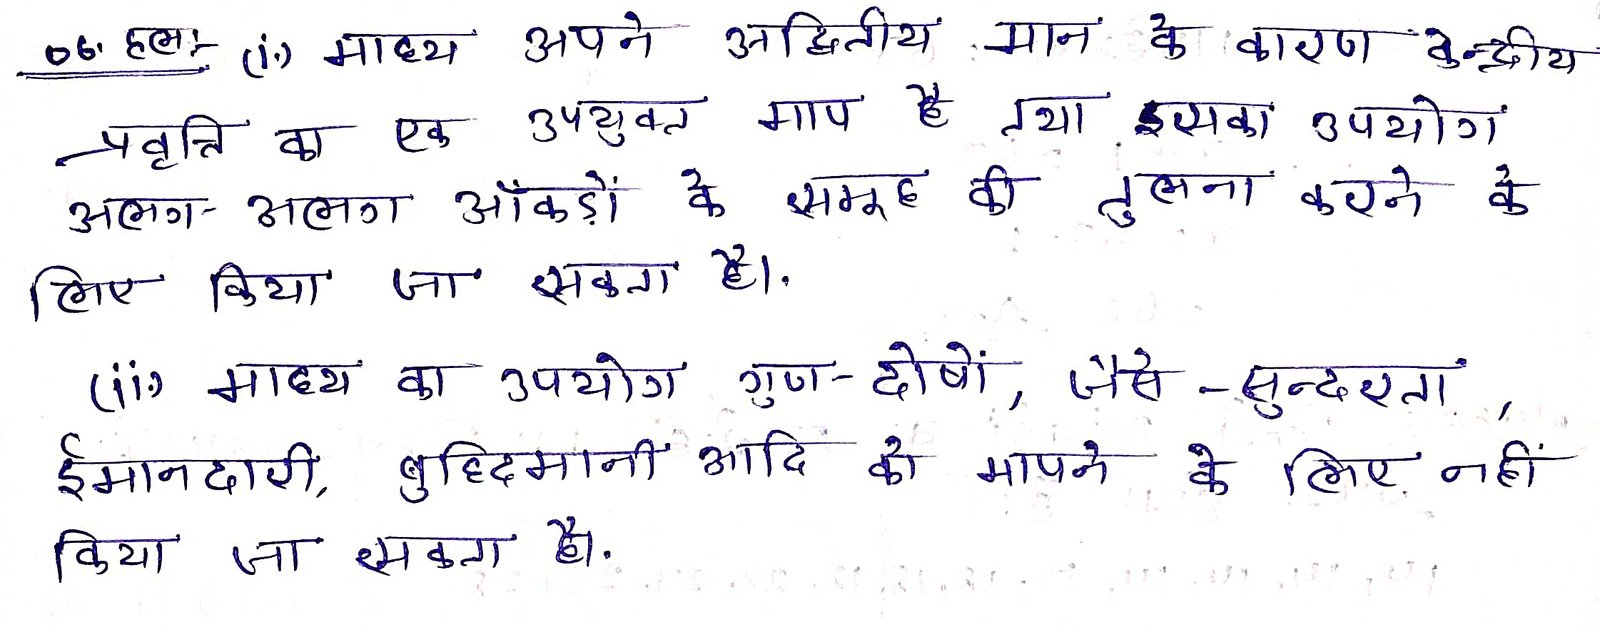 06. हल:- (i) माध्य अपने अद्वितीय मान के कारण केन्द्रीय
प्रवृत्ति का एक उपयुक्त माप है तथा इसका उपयोग
अलग-अलग आँकड़ों के समूह की तुलना करने के
लिए किया जा सकता है।
(ii) माध्य का उपयोग गुण-दोषों, जैसे -सुन्दरता,
ईमानदारी, बुद्धिमानी आदि को मापने के लिए नहीं
किया जा सकता है।